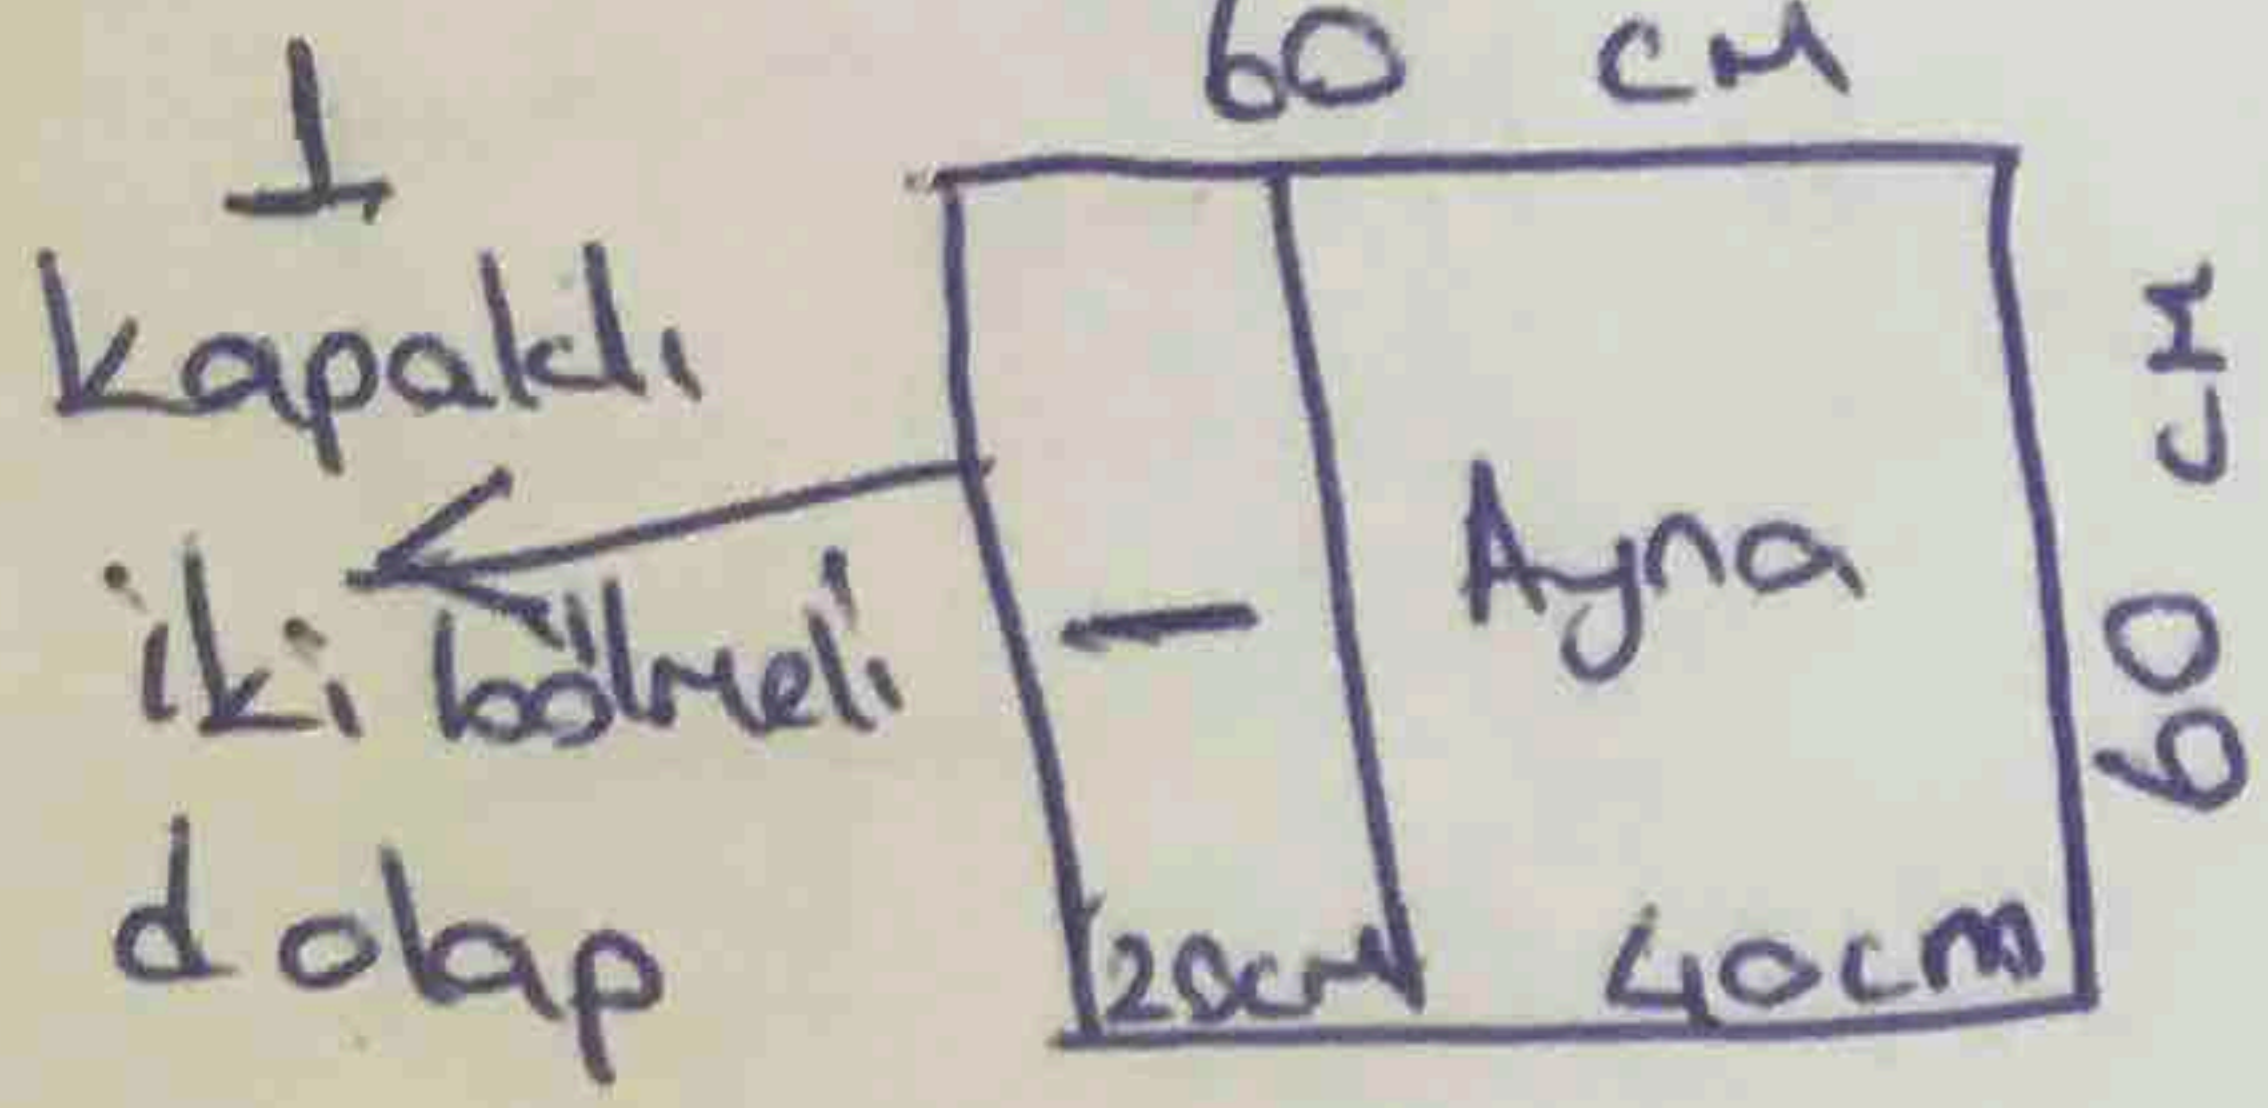 60 cm
1
kapaklı
iki bölmeli
dolap
Ayna
60 cm
20cm
40cm